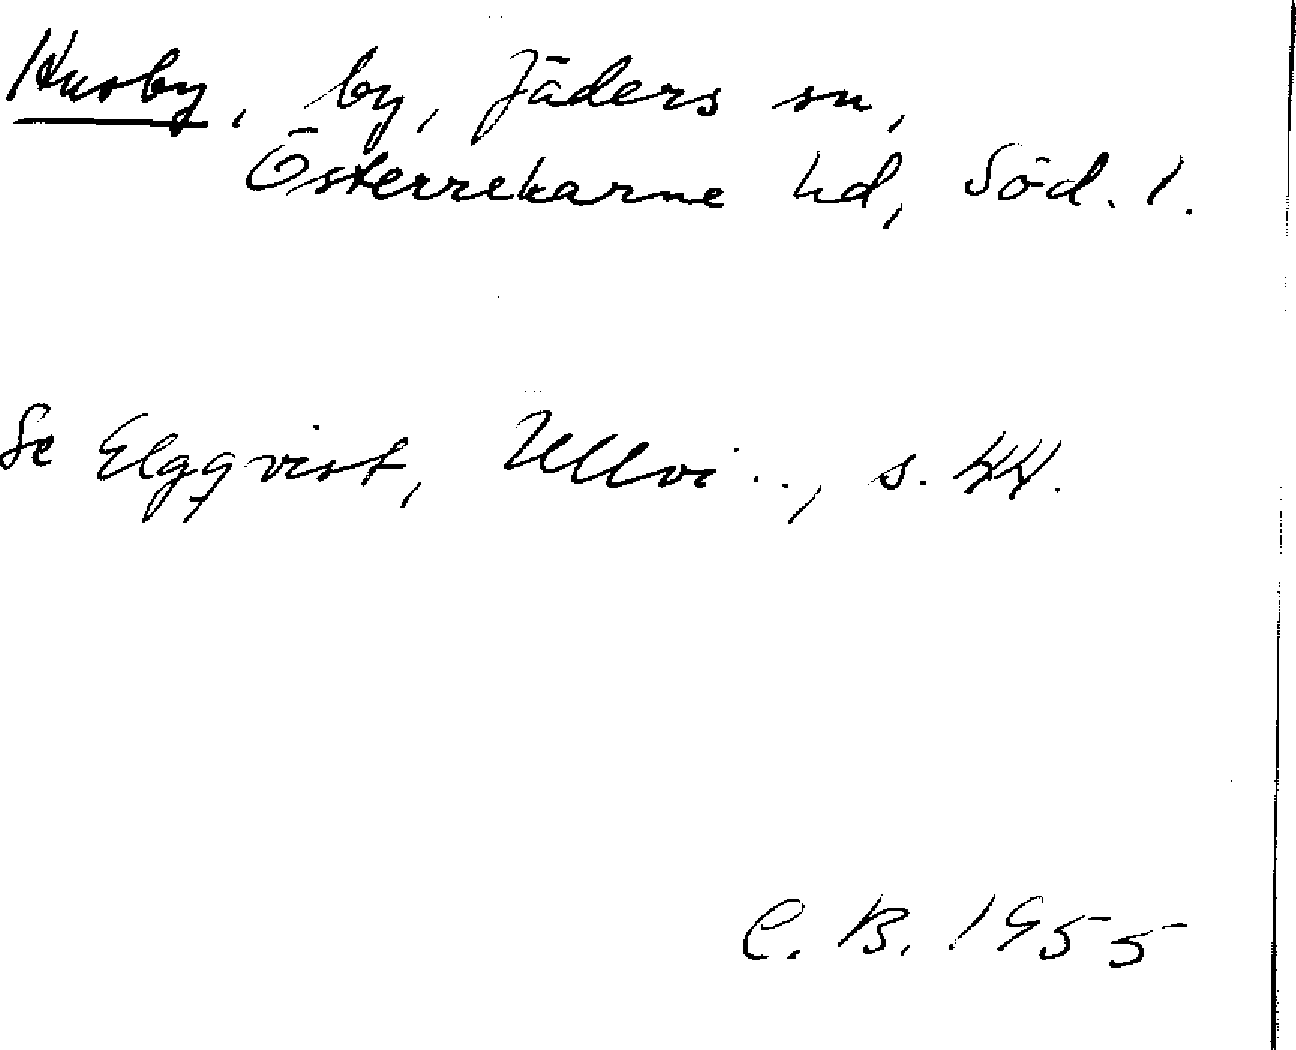 Husby, by, Jäders sn,
Österrekarne hd, Söd. l.
Se Elgqvist, Ullvi .., s. 44.
C. B. 1955